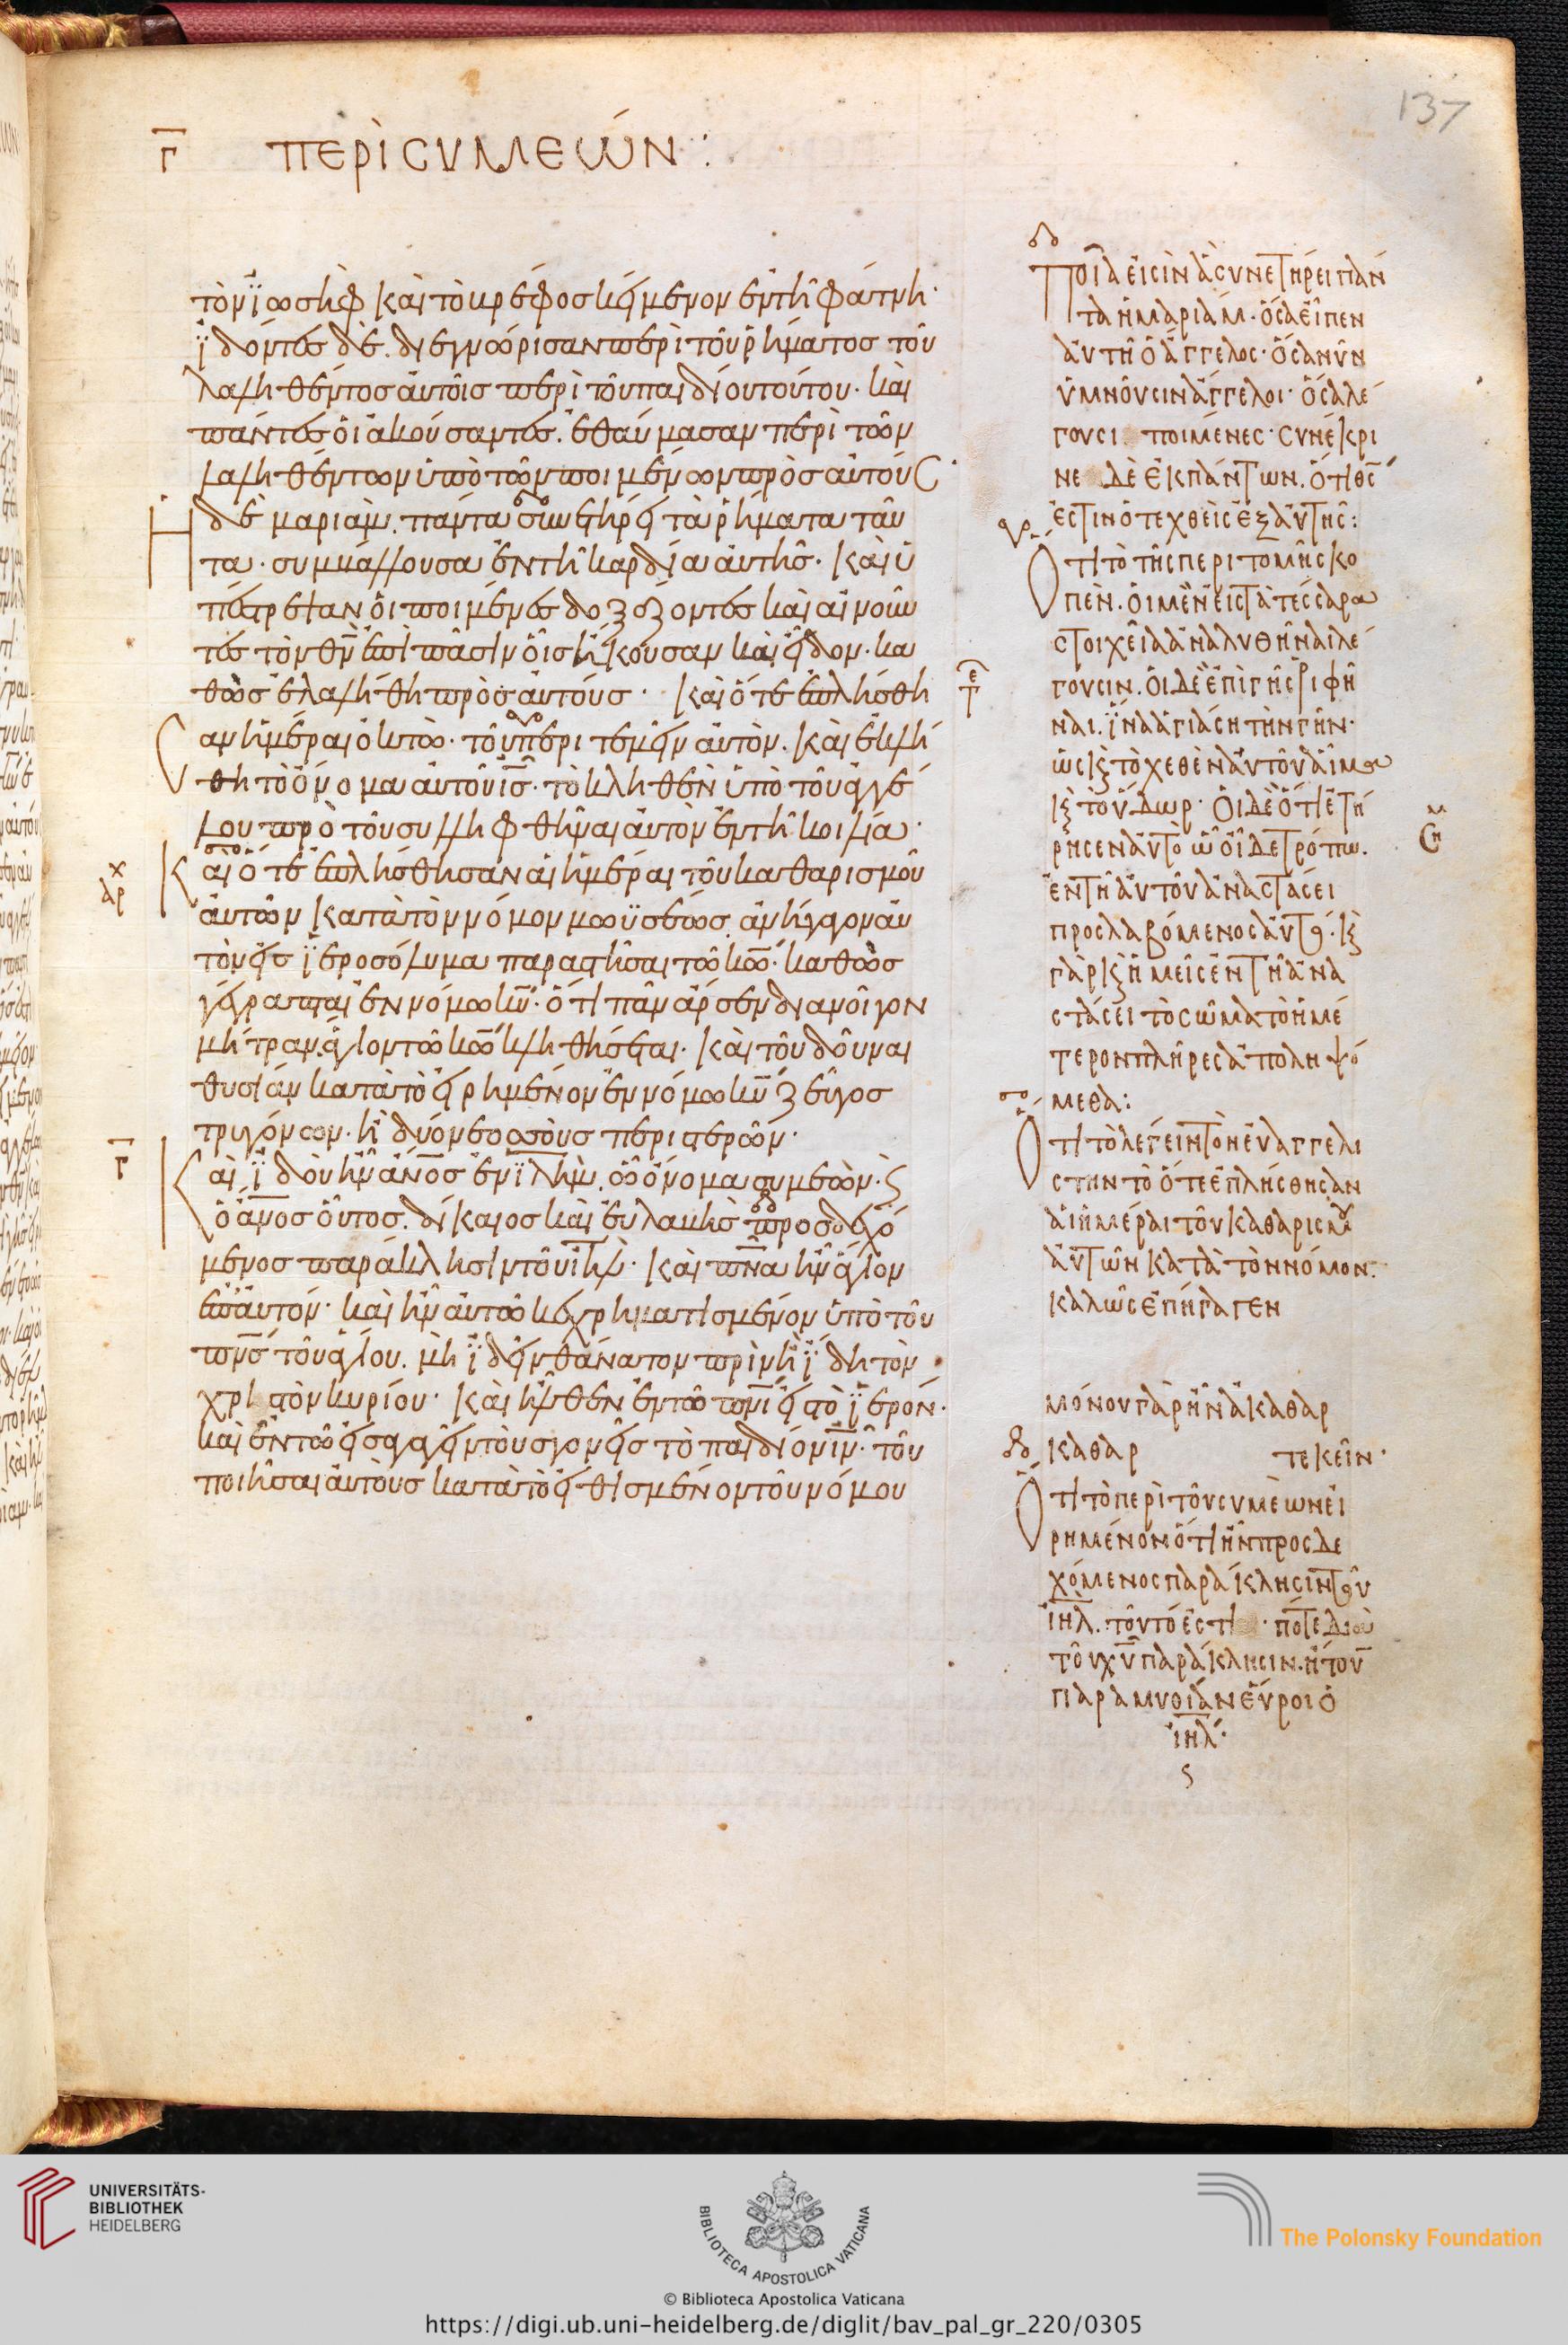 137
Γ̅ ΠΕΡῚ ΣΥΜΕΏΝ :
τὸν ϊωσὴφ καὶ τὸ βρέφος κείμενον ἐν τῆ φάτνη·
ϊδόντες δὲ. διεγνώρισαν περὶ τοῦ ῥήματος τοῦ
λαληθέντος αὐτοῖς περὶ τοῦ παιδίου τούτου· καὶ
πάντες οἱ ἀκούσαντες. ἐθαύμασαν περὶ τῶν
λαληθέντων ὑπὸ τῶν ποιμένων πρὸς αὐτούς·
Ἡ δὲ μαριὰμ. πάντα συνετήρει τὰ ῥήματα ταῦ
τα· συμβάλλουσα ἐν τῆ καρδία αὐτῆς· καὶ ὑ
πέστρεψαν οἱ ποιμένες δοξάζοντες καὶ αἰνοῦν
τες τὸν θν̅ ἐπὶ πᾶσιν οἷς ἤκουσαν καὶ εἶδον· κα
θὼς ἐλαλήθη πρὸς αὐτούς· καὶ ὅτε ἐπλήσθη
σαν ἡμέραι ὀκτὼ· τοῦ περιτεμεῖν αὐτὸν. καὶ ἐκλή
θη τὸ ὄνομα αὐτοῦ ι̅ς̅· τὸ κληθὲν ὑπὸ τοῦ ἀγγέ
λου πρὸ τοῦ συλληφθῆναι αὐτὸν ἐν τῆ κοιλία·
Καὶ ὅτε ἐπλήσθησαν αἱ ἡμέραι τοῦ καθαρισμοῦ
αὐτῶν κατὰ τὸν νόμον μωϋσέως. ἀνήγαγον αὐ
τὸν εἰς ϊεροσόλυμα παραστῆσαι τῶ κω̅· καθὼς
γέγραπται ἐν νόμω κυ̅· ὅτι πᾶν ἄρσεν διανοῖγον
μήτραν ἅγιον τῶ κω̅ κληθήσεται· καὶ τοῦ δοῦναι
θυσίαν κατὰ τὸ εἰρημένον ἐν νόμω κυ̅ ζεῦγος
τρυγόνων· ἢ δύο νεοσσοὺς περιστερῶν·
Καὶ ϊδοὺ ἦν ἀν̅ο̅ς̅ ἐν ϊ̅λ̅ημ̅. ὧ ὄνομα συμεών· κ
ὁ α̅ν̅ος οὗτος. δίκαιος καὶ εὐλαβὴς προσδεχό
μενος παράκλησιν τοῦ ι̅η̅λ̅· καὶ πν̅α̅ ἦν ἅγιον
ἐπ᾿ αὐτόν· καὶ ἦν αὐτῶ κεχρηματισμένον ὑπὸ τοῦ
πν̅ς̅ τοῦ ἁγίου. μὴ ϊδεῖν θάνατον πρὶν ἢ ϊδη τὸν
χριστὸν κυρίου· καὶ ἦλθεν ἐν τῶ πν̅ι̅ εἰς τὸ ϊερόν·
καὶ ἐν τῶ εἰσαγαγεῖν τοὺς γονεῖς τὸ παιδίον ι̅ν̅· τοῦ
ποιῆσαι αὐτοὺς κατὰ τὸ εἰθισμένον τοῦ νόμου
Ποῖα εἰσὶν ἃ συνετήρει πάν
τα ἡ μαριάμ· ὅσα εἶπεν
αὐτῆ ὁ ἄγγελος· ὅσα νῦν
ὑμνοῦσιν ἄγγελοι· ὅσα λέ
γουσι ποιμένες· συνέκρι
νε δὲ ἐκ πάντων. ὅτι θς̅
ἐστιν ὁ τεχθεὶς ἐξ αὐτῆς:
Ὅτι τὸ τῆς περιτομῆς κο
πὲν. οἱ μὲν εἰς τὰ τέσσαρα
στοιχεῖα ἀναλυθῆναι λέ
γουσιν. οἱ δὲ ἐπὶ γῆς ῥιφῆ
ναι. ϊνα ἁγιάση τὴν γῆν·
ὡς κ τὸ χεθὲν αὐτοῦ αἷμα
κ τὸ ὕδωρ· οἱ δὲ ὅτι ἐτή
ρησεν αὐτὸ ὧ οἶδε τρόπω.
ἐν τῆ αὐτοῦ ἀναστάσει
προσλαβόμενος αὐτό· κ
γὰρ κ ἡμεῖς ἐν τῆ ἀνα
στάσει τὸ σῶμα τὸ ἡμέ
τερον πλῆρες ἀποληψό
μεθα:
Ὅτι τὸ λέγειν τὸν εὐαγγελι
στὴν τὸ ὅτε ἐπλήσθησαν
αἱ ἡμέραι τοῦ καθαρισμοῦ
αὐτῶν κατὰ τὸν νόμον.
καλῶς ἐπήγαγεν
μόνου γὰρ ἦν ἀκαθαρ
καθαρ τεκεῖν·
Ὅτι τὸ περὶ τοῦ συμεὼν εἰ
ρημένον ὅτι ἦν προσδε
χόμενος παράκλησιν τοῦ
ι̅η̅λ̅. τοῦτό ἐστι · πότε
τοῦ χυ̅ παράκλησιν. ἤτουν
παραμυθίαν εὕροι ὁ
ι̅η̅λ̅·
UNIVERSITÄTS-
BIBLIOTHEK
HEIDELBERG
BIBLIOTECA APOSTOLICA VATICANA
The Polonsky Foundation
© Biblioteca Apostolica Vaticana
https://digi.ub.uni-heidelberg.de/diglit/bav_pal_gr_220/0305